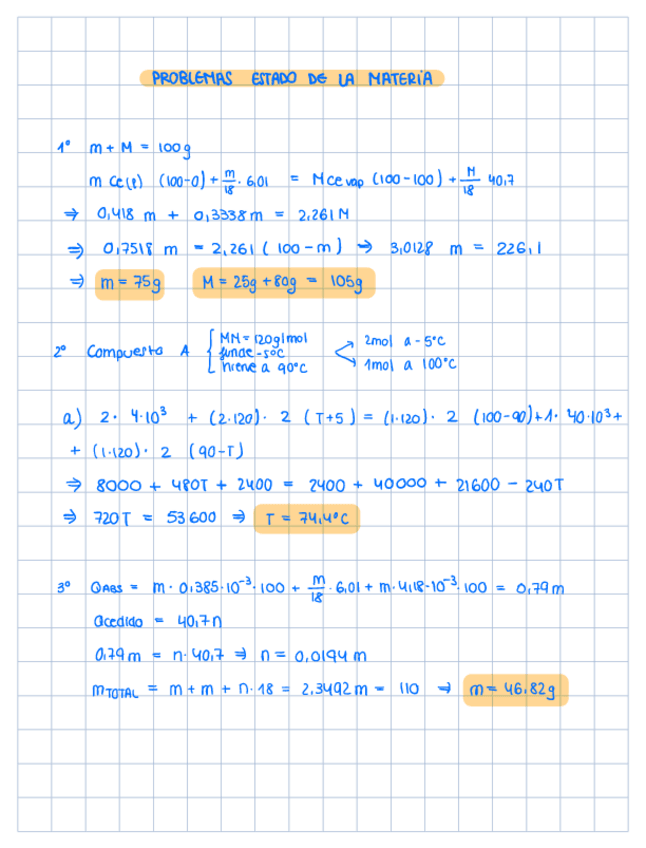 PROBLEMAS ESTADO DE LA MATERIA
1º m + M = 100g
m Ce(l) (100-0) + m/18 · 6,01 = M ce vap (100-100) + M/18 40,7
⇒ 0,418 m + 0,3338 m = 2,261 M
⇒ 0,7518 m = 2,261 (100-m) → 3,0128 m = 226,1
⇒ m = 75g M = 25g + 80g = 105g
2º Compuesto A { MM = 120g/mol
funde -5ºC
hierve a 90ºC
2mol a -5ºC
1mol a 100ºC
a) 2 · 4·10³ + (2·120) · 2 (T+5) = (1·120) · 2 (100-90) + 1 · 40·10³ +
+ (1·120) · 2 (90-T)
⇒ 8000 + 480T + 2400 = 2400 + 40000 + 21600 - 240T
⇒ 720T = 53600 ⇒ T = 74,4ºC
3º QABS = m · 0,385·10⁻³ · 100 + m/18 · 6,01 + m · 4,18·10⁻³ · 100 = 0,79 m
Qcedido = 40,7 n
0,79 m = n · 40,7 ⇒ n = 0,0194 m
mTOTAL = m + m + n · 18 = 2,3492 m = 110 → m = 46,82g